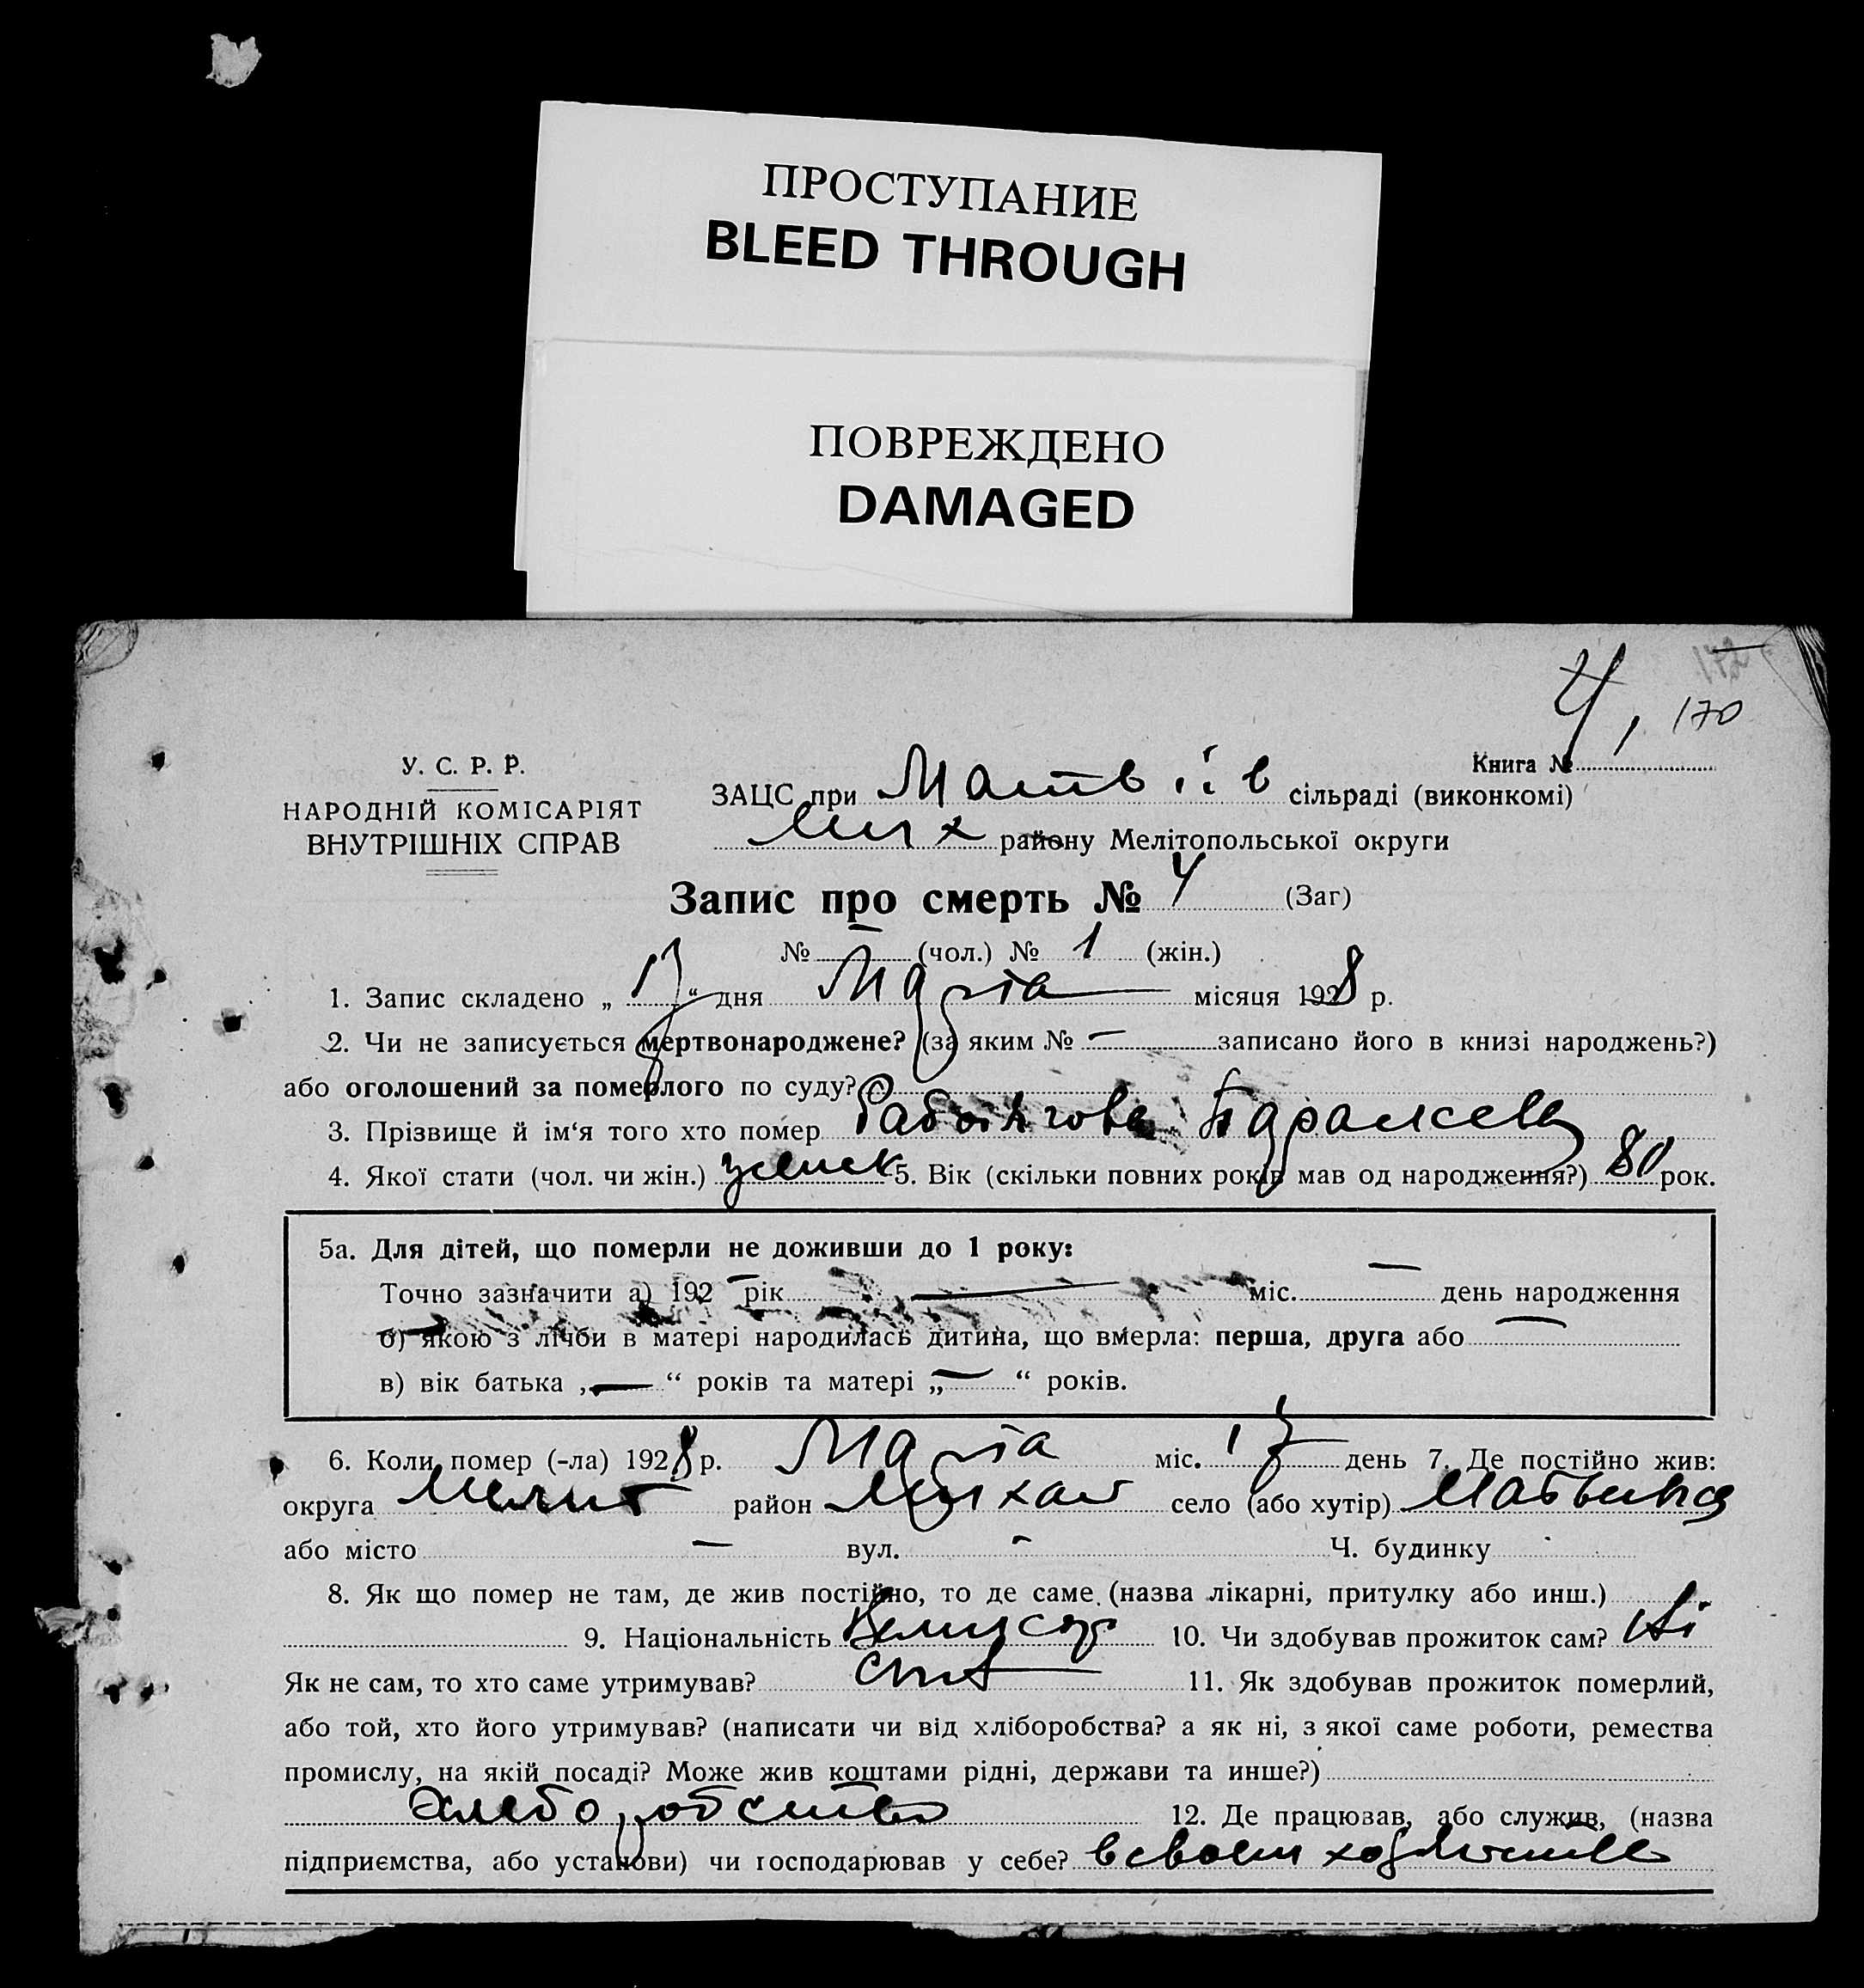 ПРОСТУПАНИЕ
BLEED THROUGH
ПОВРЕЖДЕНО
DAMAGED
4, 170
У. С. Р. Р.
НАРОДНІЙ КОМІСАРІЯТ
ВНУТРІШНІХ СПРАВ
Книга №
ЗАЦС при Матвіїв сільраді (виконкомі)
Мих району Мелітопольської округи
Запис про смерть № 4 (Заг)
№ — (чол.) № 1 (жін.)
1. Запис складено „17“ дня Марта місяця 1928 р.
2. Чи не записується мертвонароджене? (за яким № — записано його в книзі народжень?)
або оголошений за померлого по суду?
3. Прізвище й ім‘я того хто помер
4. Якої стати (чол. чи жін.) женск 5. Вік (скільки повних років мав од народження?) 80 рок.
5а. Для дітей, що померли не доживши до 1 року:
Точно зазначити а) 192— рік — міс. — день народження
б) якою з лічби в матері народилась дитина, що вмерла: перша, друга або —
в) вік батька „—“ років та матері „—“ років.
6. Коли помер (-ла) 1928 р. Марта міс. 17 день 7. Де постійно жив:
округа Мелит район Михай село (або хутір)
або місто — вул. - Ч. будинку
8. Як що помер не там, де жив постійно, то де саме (назва лікарні, притулку або инш.)
9. Національність 10. Чи здобував прожиток сам? Ні
Як не сам, то хто саме утримував? сын 11. Як здобував прожиток померлий,
або той, хто його утримував? (написати чи від хліборобства? а як ні, з якої саме роботи, ремества
промислу, на якій посаді? Може жив коштами рідні, держави та инше?)
Хлеборобство 12. Де працював, або служив, (назва
підприємства, або установи) чи господарював у себе? в своем хозяйстве